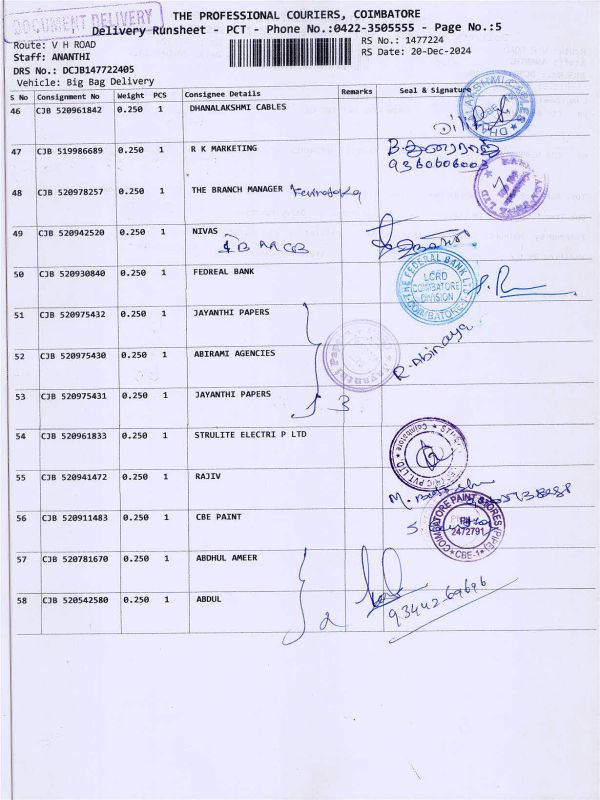 DOCUMENT DELIVERY
THE PROFESSIONAL COURIERS, COIMBATORE
Delivery Runsheet - PCT - Phone No.:0422-3505555 - Page No.:5
Route: V H ROAD
RS No.: 1477224
Staff: ANANTHI
RS Date: 20-Dec-2024
DRS No.: DCJB147722405
Vehicle: Big Bag Delivery
S No Consignment No Weight PCS Consignee Details Remarks Seal & Signature
46 CJB 520961842 0.250 1 DHANALAKSHMI CABLES
47 CJB 519986689 0.250 1 R K MARKETING
48 CJB 520978257 0.250 1 THE BRANCH MANAGER
49 CJB 520942520 0.250 1 NIVAS
50 CJB 520930840 0.250 1 FEDREAL BANK
THE FEDERAL BANK LTD
LCRD
COIMBATORE
DIVISION
COIMBATORE-1
51 CJB 520975432 0.250 1 JAYANTHI PAPERS
52 CJB 520975430 0.250 1 ABIRAMI AGENCIES
R. Abinaya
53 CJB 520975431 0.250 1 JAYANTHI PAPERS
3
54 CJB 520961833 0.250 1 STRULITE ELECTRI P LTD
55 CJB 520941472 0.250 1 RAJIV
56 CJB 520911483 0.250 1 CBE PAINT
COIMBATORE PAINT STORES
PH
2472791
CBE-1
57 CJB 520781670 0.250 1 ABDHUL AMEER
58 CJB 520542580 0.250 1 ABDUL
2
93442-69696